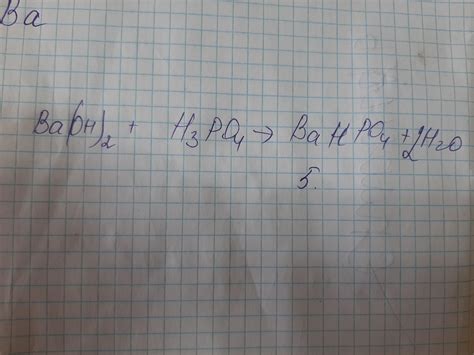 Ba
Ba(OH)₂ + H₃PO₄ → BaHPO₄ + 2H₂O
5.